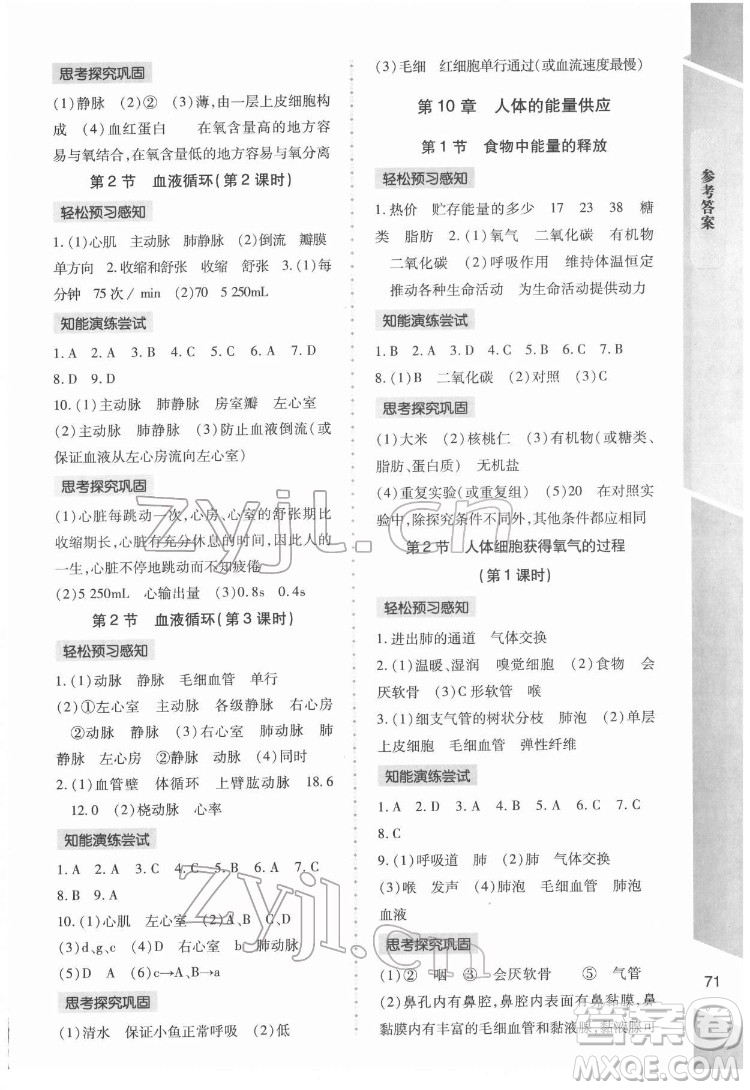 思考探究巩固
(1)静脉 (2)② (3)薄,由一层上皮细胞构
成 (4)血红蛋白 在氧含量高的地方容
易与氧结合,在氧含量低的地方容易与氧分离
第2节 血液循环(第2课时)
轻松预习感知
1.(1)心肌 主动脉 肺静脉 (2)倒流 瓣膜
单方向 2.收缩和舒张 收缩 舒张 3.(1)每
分钟 75次/min (2)70 5 250mL
知能演练尝试
1.A 2.A 3.B 4.C 5.C 6.C 7.B
8.D 9.D
10.(1)主动脉 肺静脉 房室瓣 左心室
(2)主动脉 肺静脉 (3)防止血液倒流(或
保证血液从左心房流向左心室)
思考探究巩固
(1)心脏每跳动一次,心房、心室的舒张期比
收缩期长,心脏有充分休息的时间,因此,人的
一生,心脏不停地跳动而不知疲倦
(2)5 250mL 心输出量 (3)0.8s 0.4s
第2节 血液循环(第3课时)
轻松预习感知
1.(1)动脉 静脉 毛细血管 单行
(2)①左心室 主动脉 各级静脉 右心房
②动脉 静脉 (3)①右心室 肺动脉 肺
静脉 左心房 ②静脉 动脉 (4)同时
2.(1)血管壁 体循环 上臂肱动脉 18.6
12.0 (2)桡动脉 心率
知能演练尝试
1.A 2.A 3.C 4.C 5.A 6.D 7.C
8.B 9.A
10.(1)心肌 左心室 (2)A、B、C
(3)d、g、c (4)右心室 b 肺动脉
(5)D (6)c→A、B→a
思考探究巩固
(1)清水 保证小鱼正常呼吸 (2)低
(3)毛细 红细胞单行通过(或血流速度最慢)
第10章 人体的能量供应
第1节 食物中能量的释放
轻松预习感知
1.热价 贮存能量的多少 17 23 38 糖
类 脂肪 2.(1)氧气 二氧化碳 有机物
二氧化碳 (2)呼吸作用 维持体温恒定
推动各种生命活动 为生命活动提供动力
知能演练尝试
1.B 2.A 3.D 4.B 5.D 6.B 7.C
8.(1)B 二氧化碳 (2)对照 (3)C
思考探究巩固
(1)大米 (2)核桃仁 (3)有机物(或糖类、
脂肪、蛋白质) 无机盐
(4)重复实验(或重复组) (5)20 在对照实
验中,除探究条件不同外,其他条件都应相同
第2节 人体细胞获得氧气的过程
(第1课时)
轻松预习感知
1.进出肺的通道 气体交换
2.(1)温暖、湿润 嗅觉细胞 (2)食物 会
厌软骨 (3)C形软骨 喉
3.(1)细支气管的树状分枝 肺泡 (2)单层
上皮细胞 毛细血管 弹性纤维
知能演练尝试
1.A 2.D 3.C 4.B 5.C 6.B 7.D
8.C
9.(1)呼吸道 肺 (2)肺 气体交换
(3)喉 发声 (4)肺泡 毛细血管 肺泡
血液
思考探究巩固
(1)② 咽 ③ 会厌软骨 ⑤ 气管
(2)鼻孔内有鼻腔,鼻腔内表面有鼻黏膜,鼻
黏膜内有丰富的毛细血管和黏液腺,黏液腺可
参考答案
71
zyjl.cn
zyjl.cn
答案圈
MXQE.COM